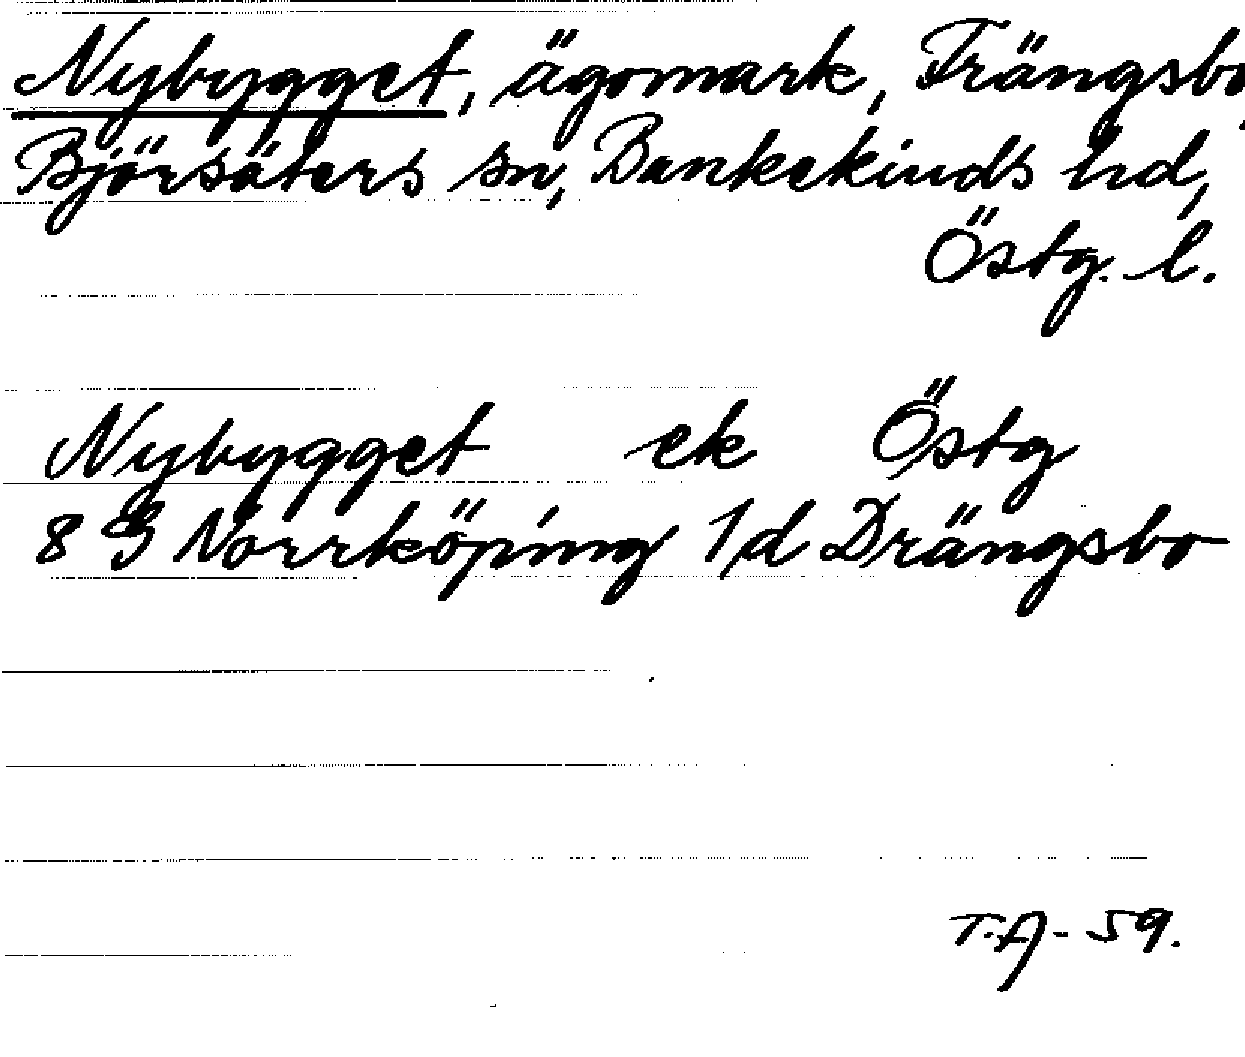 Nybygget, ägomark, Trängsbo,
Björsäters sn, Bankekinds hd,
Östg. l.
Nybygget ek Östg
8 G Norrköping 1/d Drängsbo
T.A-59.